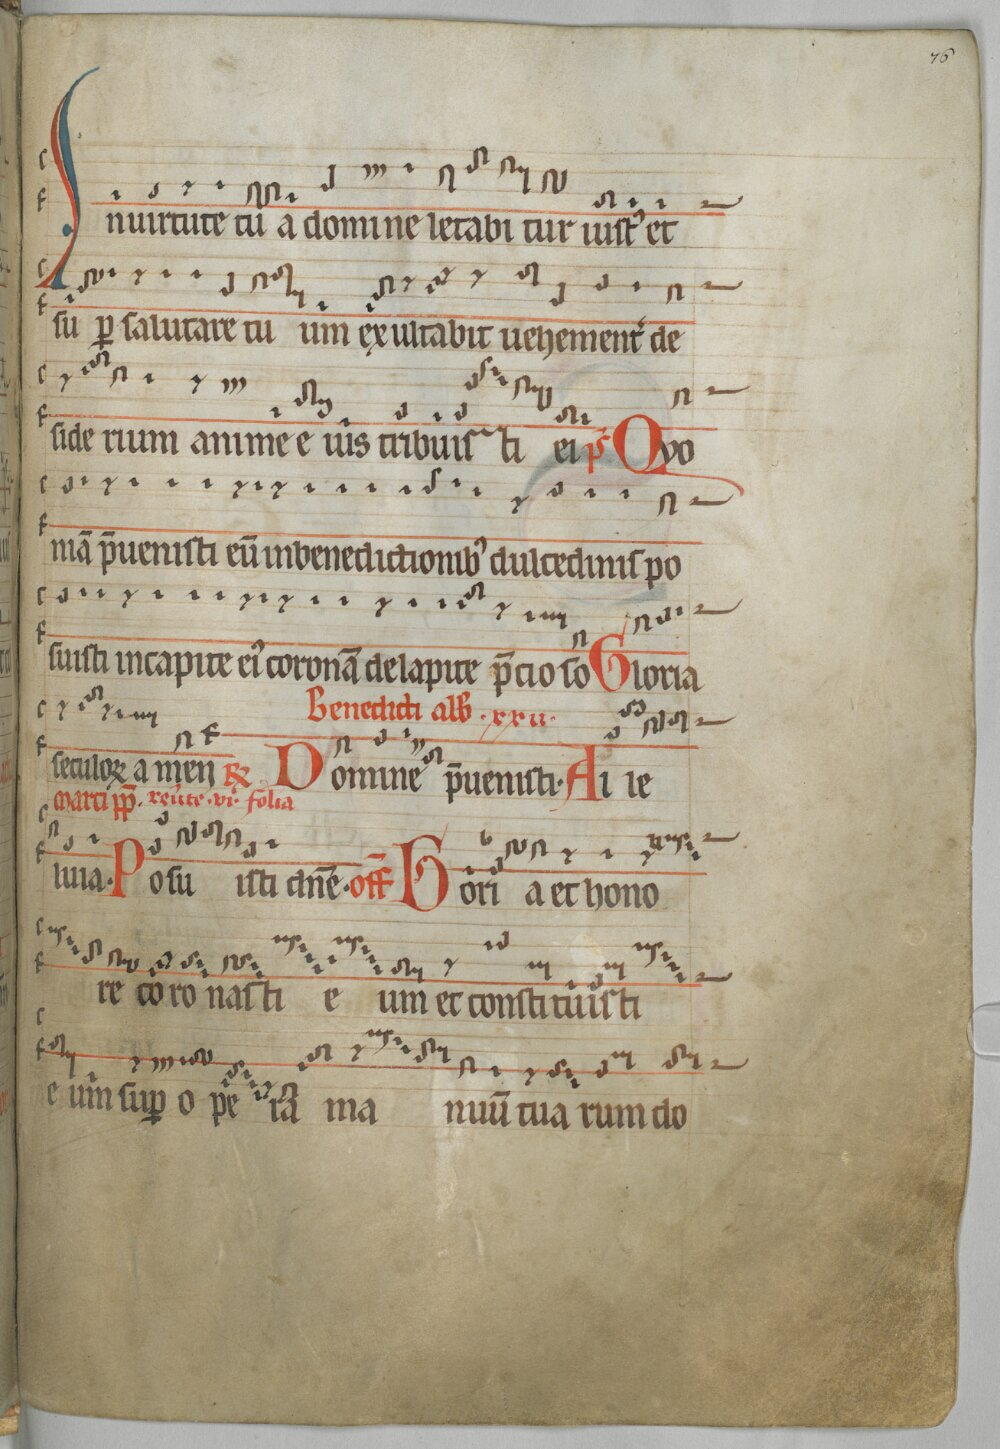 76
Inuirtute tu a domine letabi tur iust᾿ et
su ꝑ salutare tu um exultabit uehement᾿ de
side rium anime e ius tribuis ti ei p̄s Qvo
mā p̄uenisti eū inbenedictionib᾿ dulcedinis po
suisti incapite ei᾿ coronā delapite p̄cio so Gloria
Benedicti alb̄ .xxii.
seculoꝝ a men ℟ Domine p̄uenisti. Al le
marci p̄p̄. reuͣte .vi. folia
luia. Posu isti dn̄e. off̄ Glori a et hono
re coro nasti e um et constituisti
e um suꝑ o pe ra ma nuū tua rum do